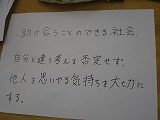 ・助け合うことのできる社会.
自分と違う考えを否定せず.
他人を思いやる気持ちを大切に
する。